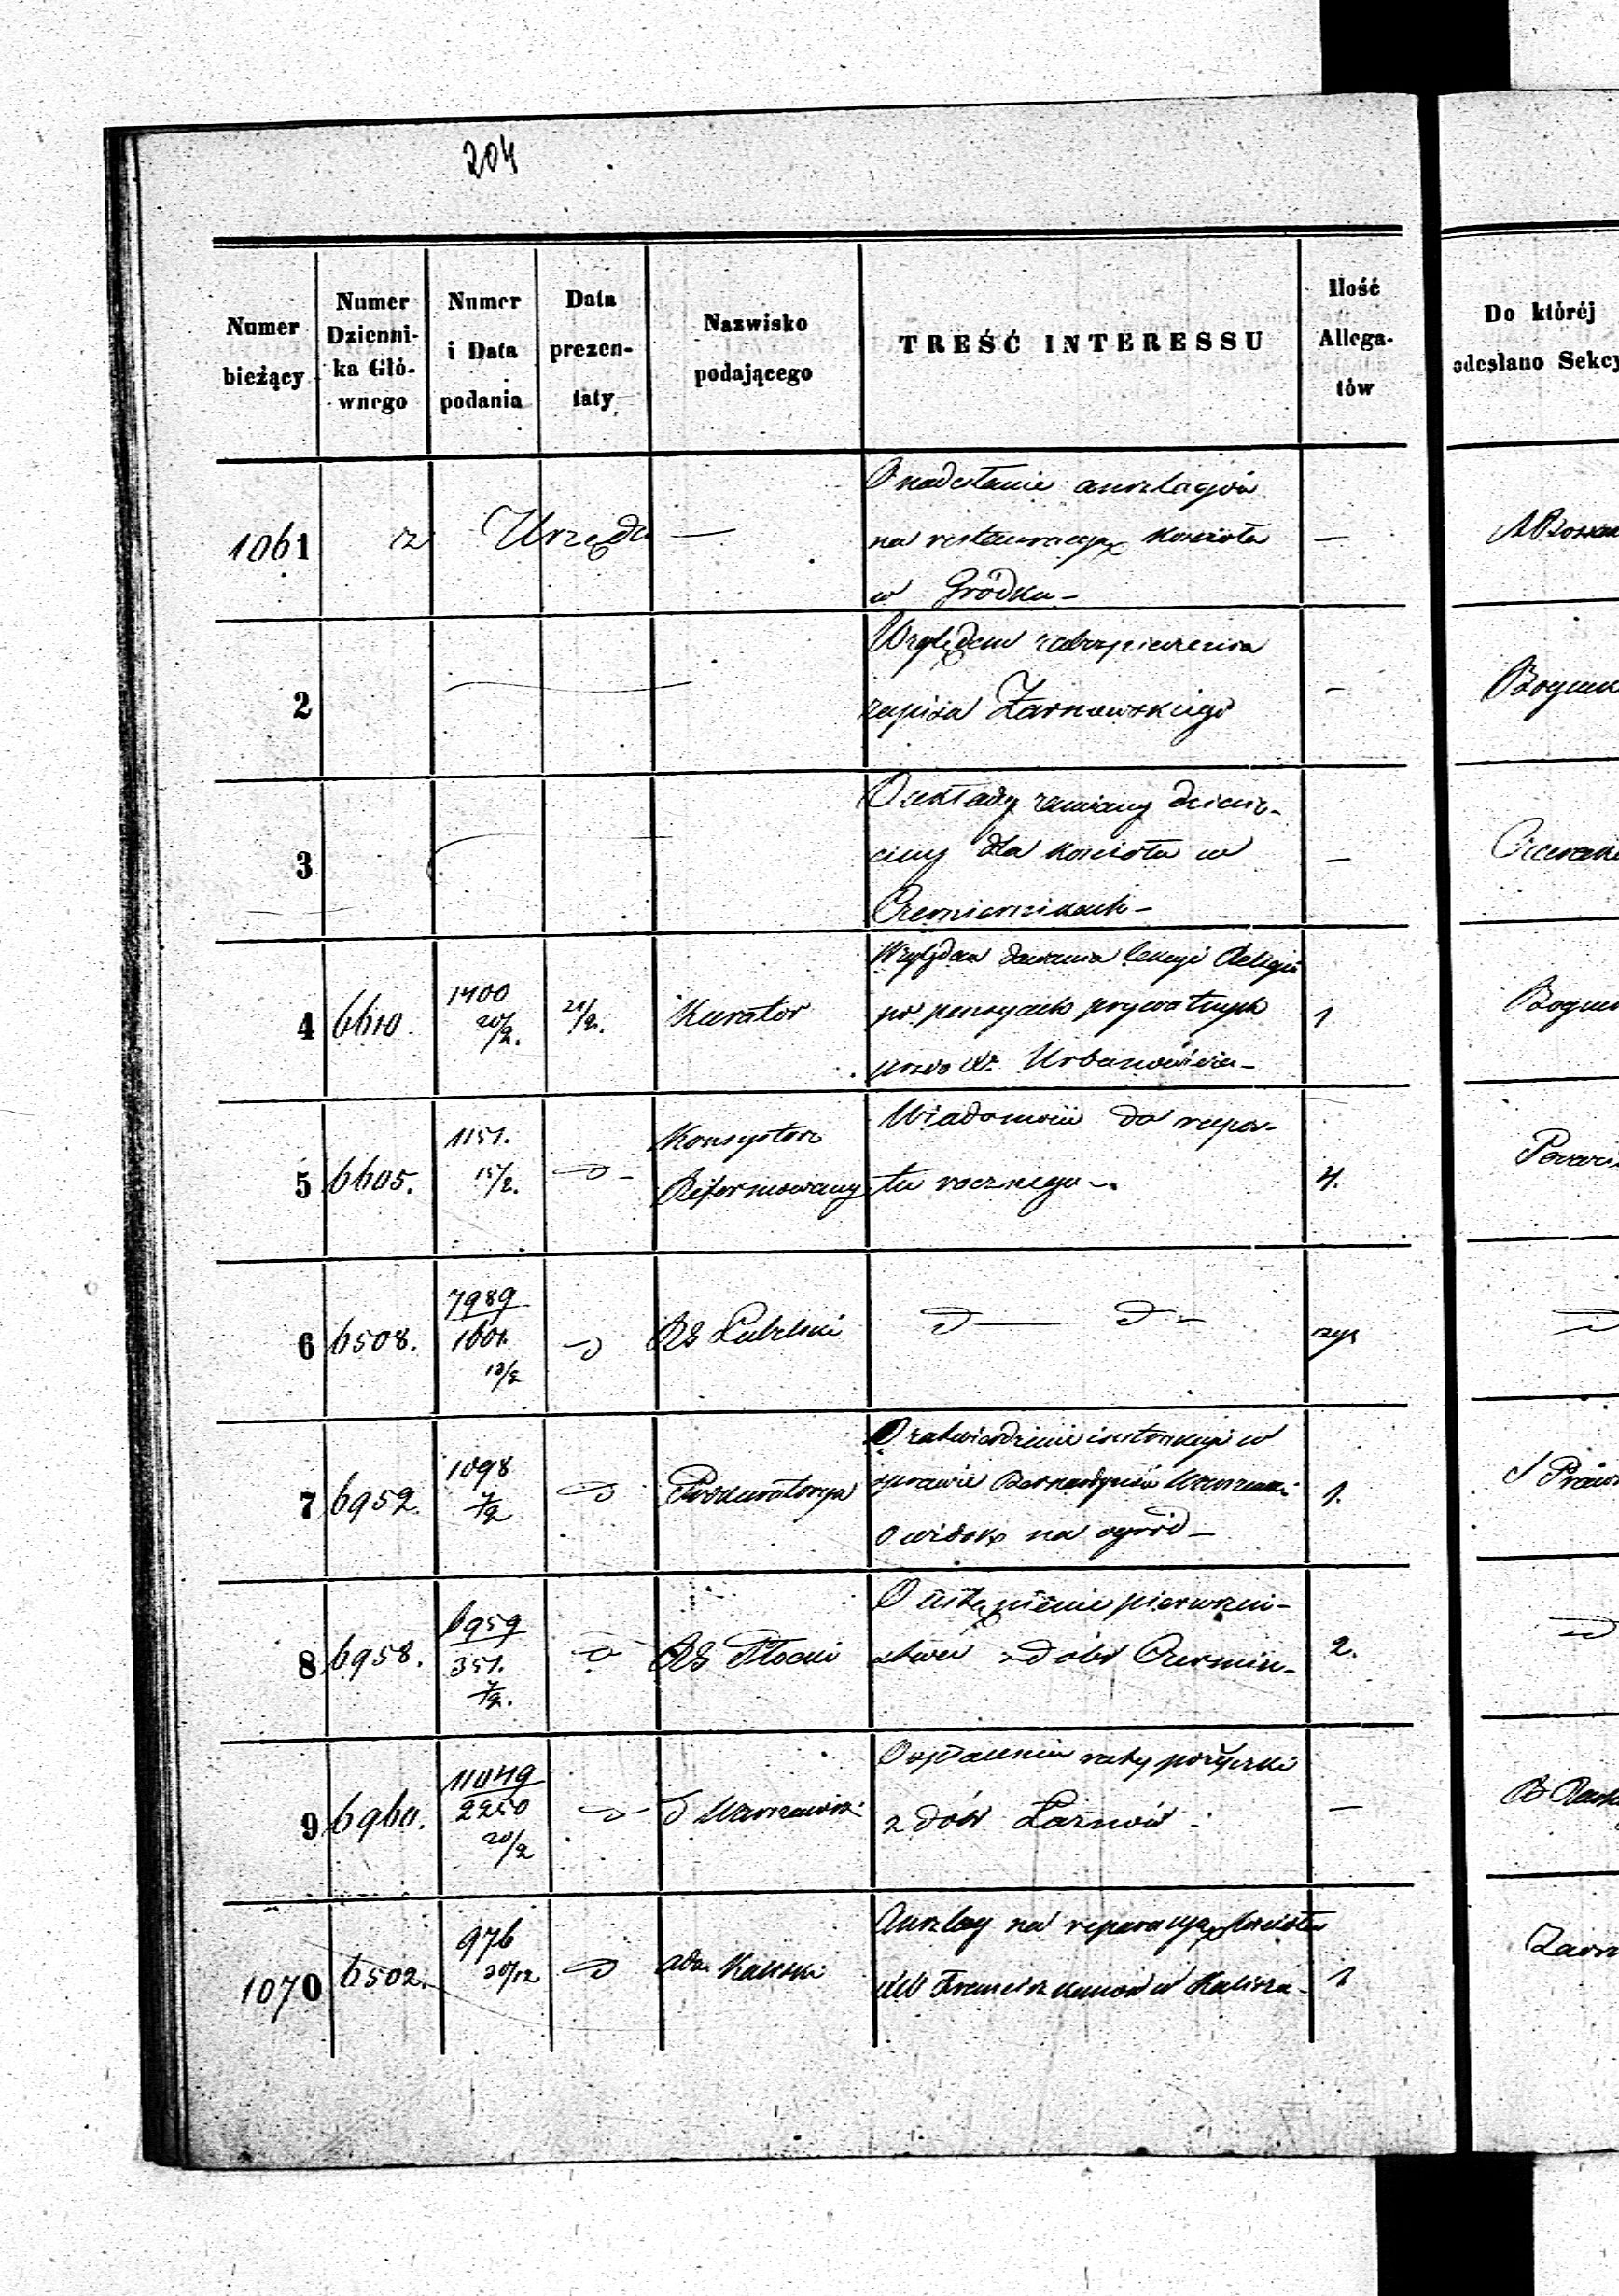 204
Numer bieżący
Numer Dzienni-ka Głó-wnego
Numer i Data podania
Data prezen-taty
Nazwisko podającego
TREŚĆ INTERESSU
Ilość Allega-tów
Do któréj odesłano Sekcy
1061 z Urzędu —
O nadesłanie anszlagów
na restauracyą kościoła —
w Gródku -
2
Względem zabezpieczenia
zapisu Żarnowskiego —
3
O układy zamiany dziesię-
ciny dla kościoła w —
Czemiernikach -
4 6610. 1400 20/2. 21/2. Kurator 1
Względem dawania lekcyi Religii
po pensyach prywatnych
przez Urbanowicza -
5 6605. 1151. 15/2. D - Konsystorz Reformowany 4.
Wiadomości do rapor-
tu rocznego -
6 6508. 7989/1601. 13/2 D RG Lubelski D — D -
7 6952. 1098 7/2 D Prokuratorya 1.
O zatwierdzenie instrukcyi w
sprawie Bernardynów Warszaw:
o widok na ogród -
8 6958. 6959/351. 7/2. D RG Płocki 2.
O ustąpienie pierwszeń-
stwa z dóbr Czermin -
D
9 6960. 11049/2250 20/2 D - D Warszawski —
O spłacenie raty pożyczki
z dóbr Łaznów
1070 6502. 976 30/12 D Kaliski 1
Anszlag na reparacyą kościoła
XX Franciszkanów w Kaliszu -